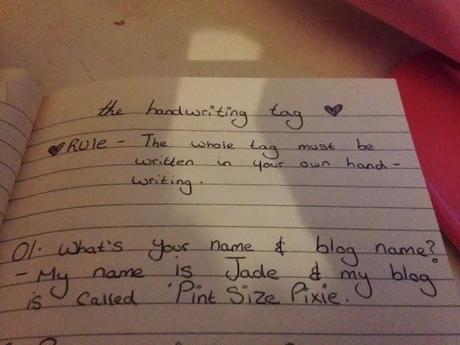 the handwriting tag ♥
♥ Rule - The whole tag must be
written in your own hand-
writing.
01. What's your name & blog name?
- My name is Jade & my blog
is called 'Pint Size Pixie.